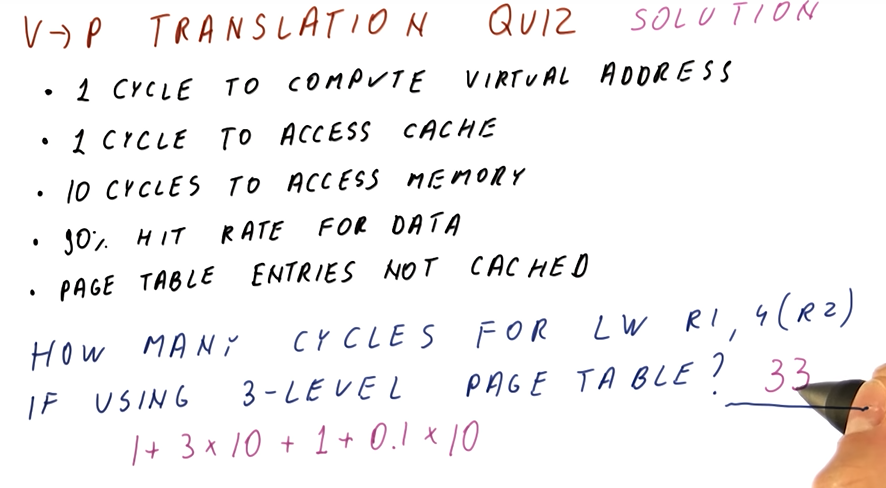 V→P TRANSLATION QUIZ SOLUTION
• 1 CYCLE TO COMPUTE VIRTUAL ADDRESS
• 1 CYCLE TO ACCESS CACHE
• 10 CYCLES TO ACCESS MEMORY
• 90% HIT RATE FOR DATA
• PAGE TABLE ENTRIES NOT CACHED
HOW MANY CYCLES FOR LW R1, 4(R2)
IF USING 3-LEVEL PAGE TABLE? 33
1 + 3 × 10 + 1 + 0.1 × 10